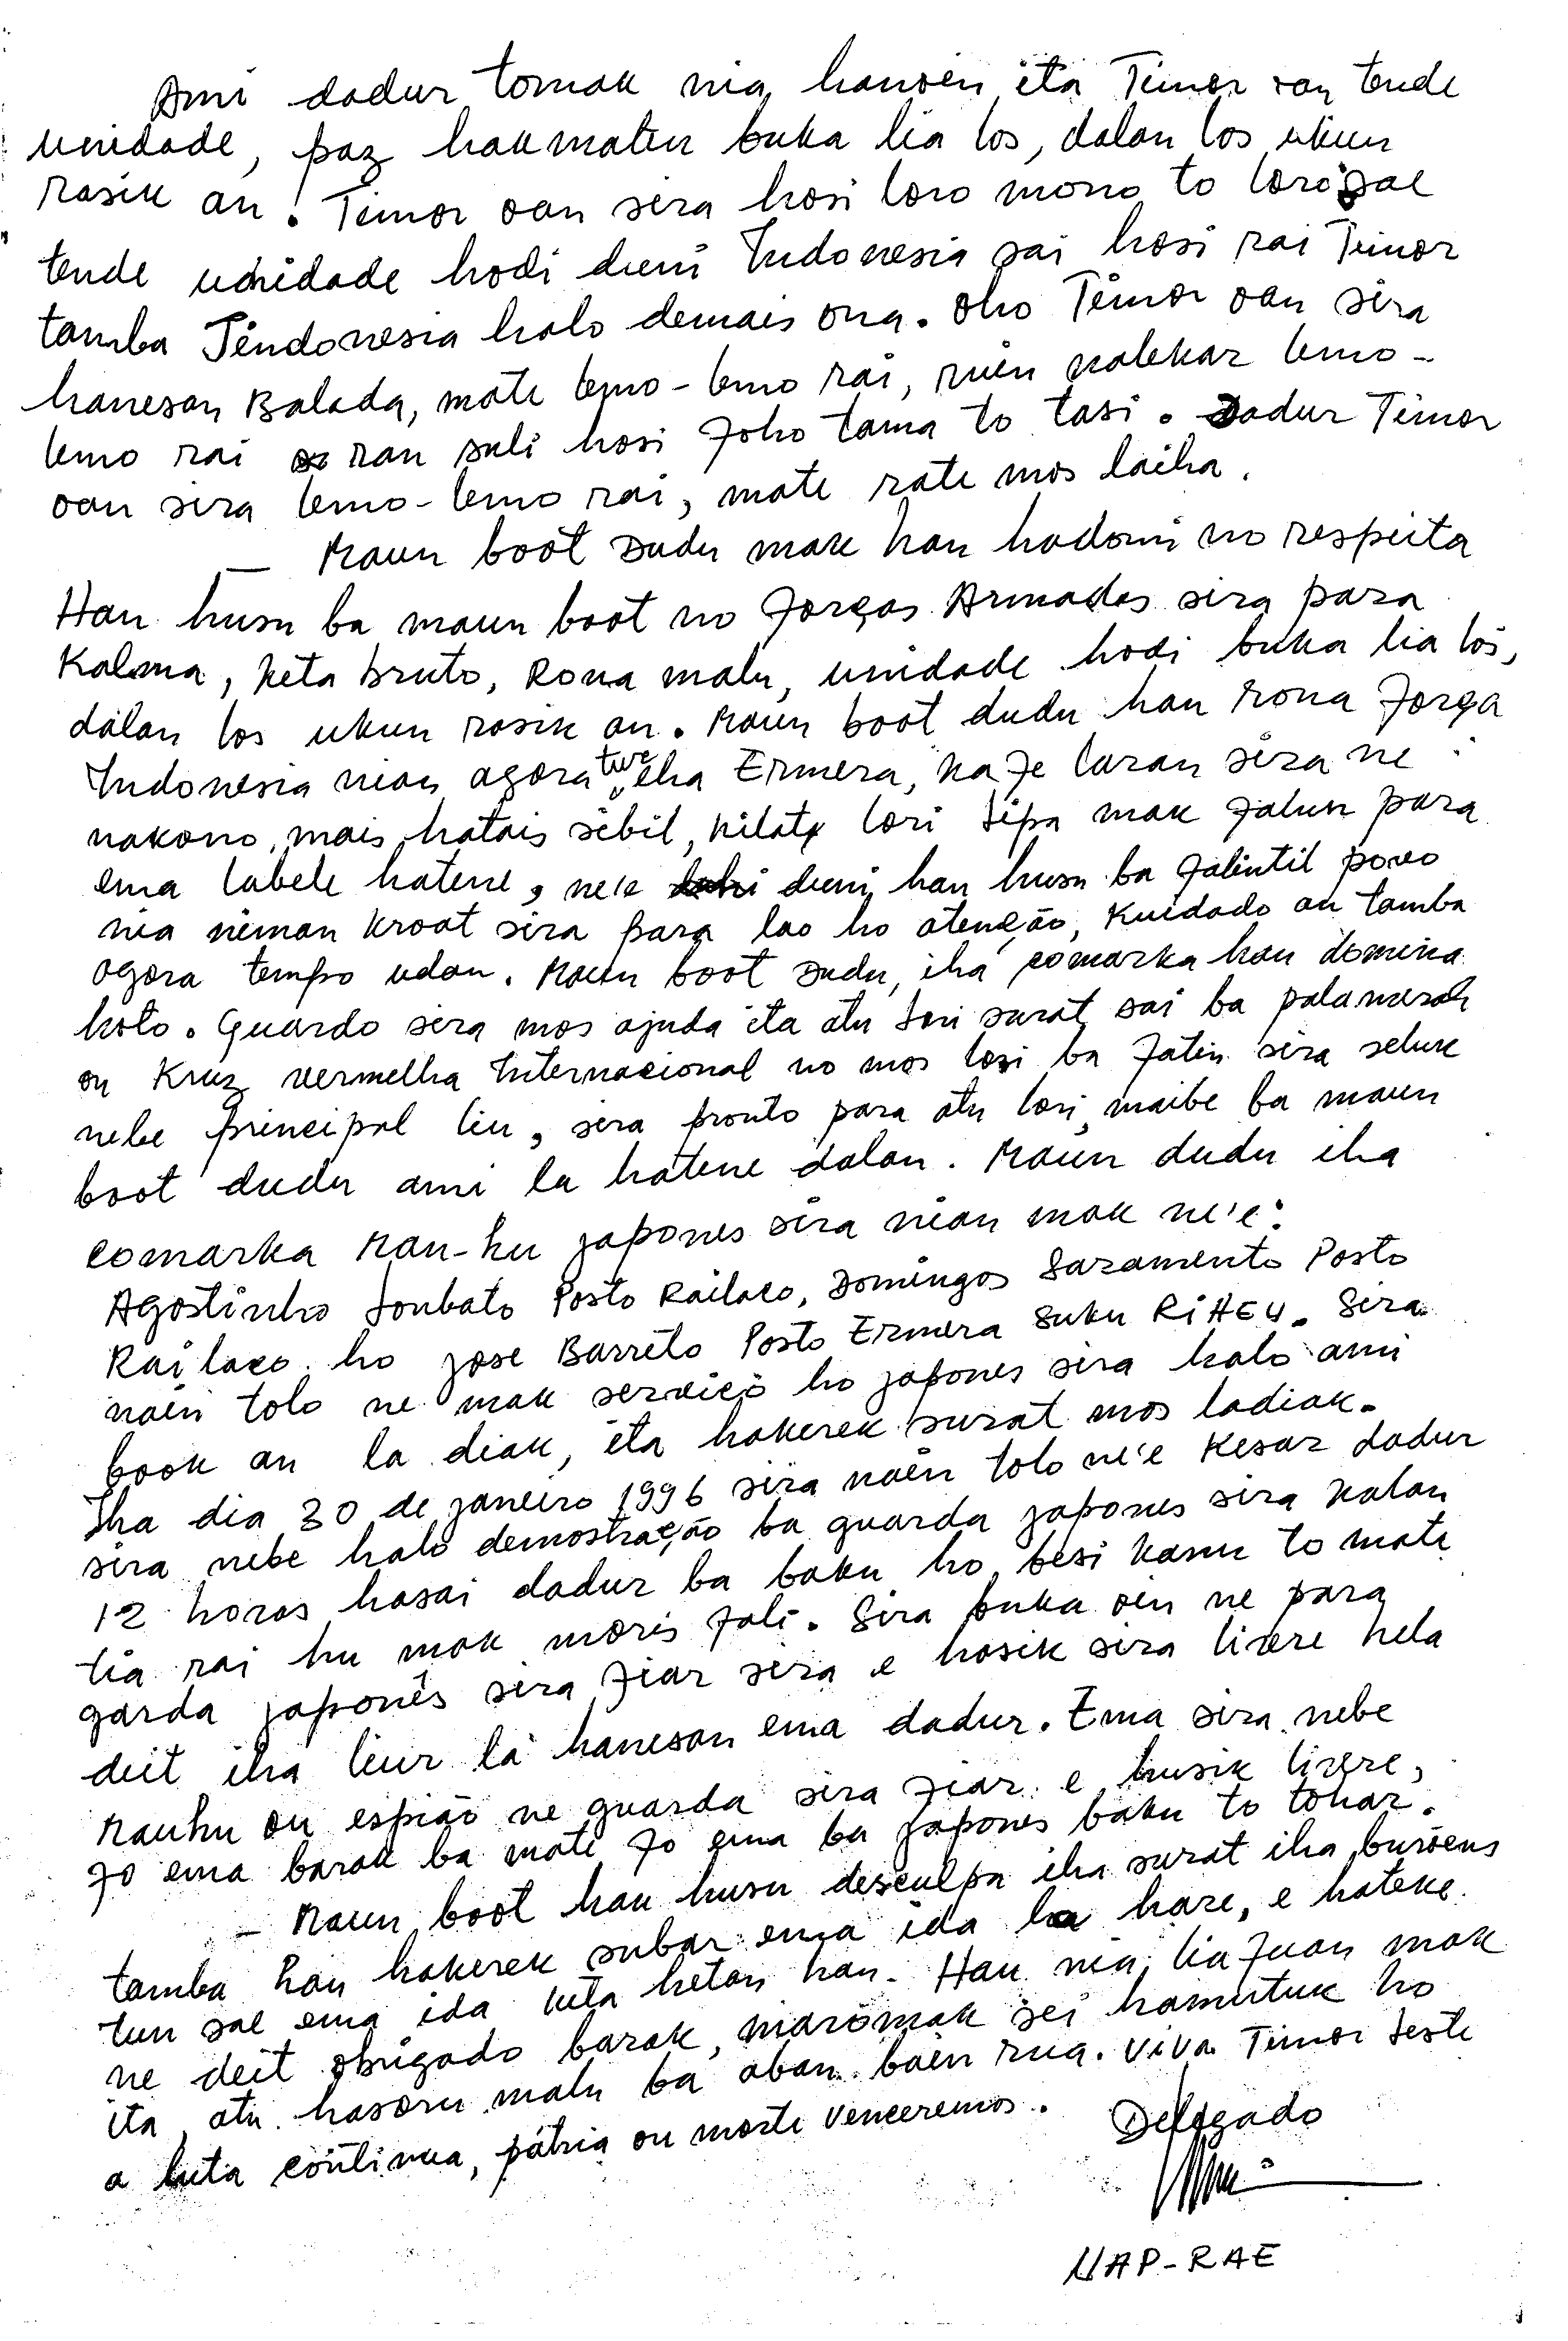 Ami dadur tomak nia hanoin ita Timor oan tende
unidade, paz hakmaten buka lia los, dalan los ukun
rasik an! Timor oan sira hosi loro mono to loro sae
tende unidade hodi duni Indonesia sai hosi rai Timor
tamba Indonesia halo demais ona. oho Timor oan sira
hanesan Balada, mate lemo-lemo rai, ruin nalekar lemo-
lemo rai ran suli hosi foho tama to tasi. Dadur Timor
oan sira lemo-lemo rai, mate rate mos laiha.
— Maun boot Dudu mak hau hadomi no respeita
Hau husu ba maun boot no Forças Armadas sira para
Kalma, keta bruto, Rona malu, unidade hodi buka lia los,
dalan los ukun rasik an. Maun boot dudu hau rona Força
Indonesia nian agora tur iha Ermera, kafe laran sira ne
nakonu, mais hatais sibil, kilat lori lipa mak falun para
ema labele hatene, ne'e duni hau husu ba falintil povo
nia niman kroat sira para lao ho atenção, Kuidado an tamba
agora tempo udan. Maun boot Dudu, iha comarka hau domina
hoto. Guardo sira mos ajuda ita atu lori surat sai ba palamerah
ou Kruz vermelha Internacional no mos lori ba fatin sira seluk
nebe principal liu, sira pronto para atu lori, maibe ba maun
boot dudu ami la hatene dalan. Maun dudu iha
comarka Mau-hu japones sira nian mak ne'e:
Agostinho Lonbato Posto Railaco, Domingos Saramento Posto
Railaco ho jose Barreto Posto Ermera Suku RiHEU. Sira
nain tolo ne mak serviço ho japones sira halo ami
book an la diak, ita hakerek surat mos ladiak.
Iha dia 30 de janeiro 1996 sira nain tolo ne'e Kesar dadur
sira nebe halo demostração ba guarda japones sira kalan
12 horas hasai dadur ba baku ho besi kanu to mate
tia rai hu mak moris fali. Sira buka oin ne para
garda japonês sira fiar sira e hosik sira livre hela
deit iha liur la hanesan ema dadur. Ema sira nebe
Mauhu ou espião ne guarda sira fiar e husik livre,
fo ema barak ba mate fo ema ba japones baku to tohar.
— Maun boot hau husu desculpa iha surat iha buroens
tamba hau hakerek subar ema ida la hare, e hateke
tun sae ema ida keta hetan hau. Hau nia liafuan mak
ne deit obrigado barak, maromak sei hamutuk ho
ita atu hasoru malu ba aban bain rua. Viva Timor Leste
a luta continua, pátria ou morte venceremos.
Delegado
NAP-RAE